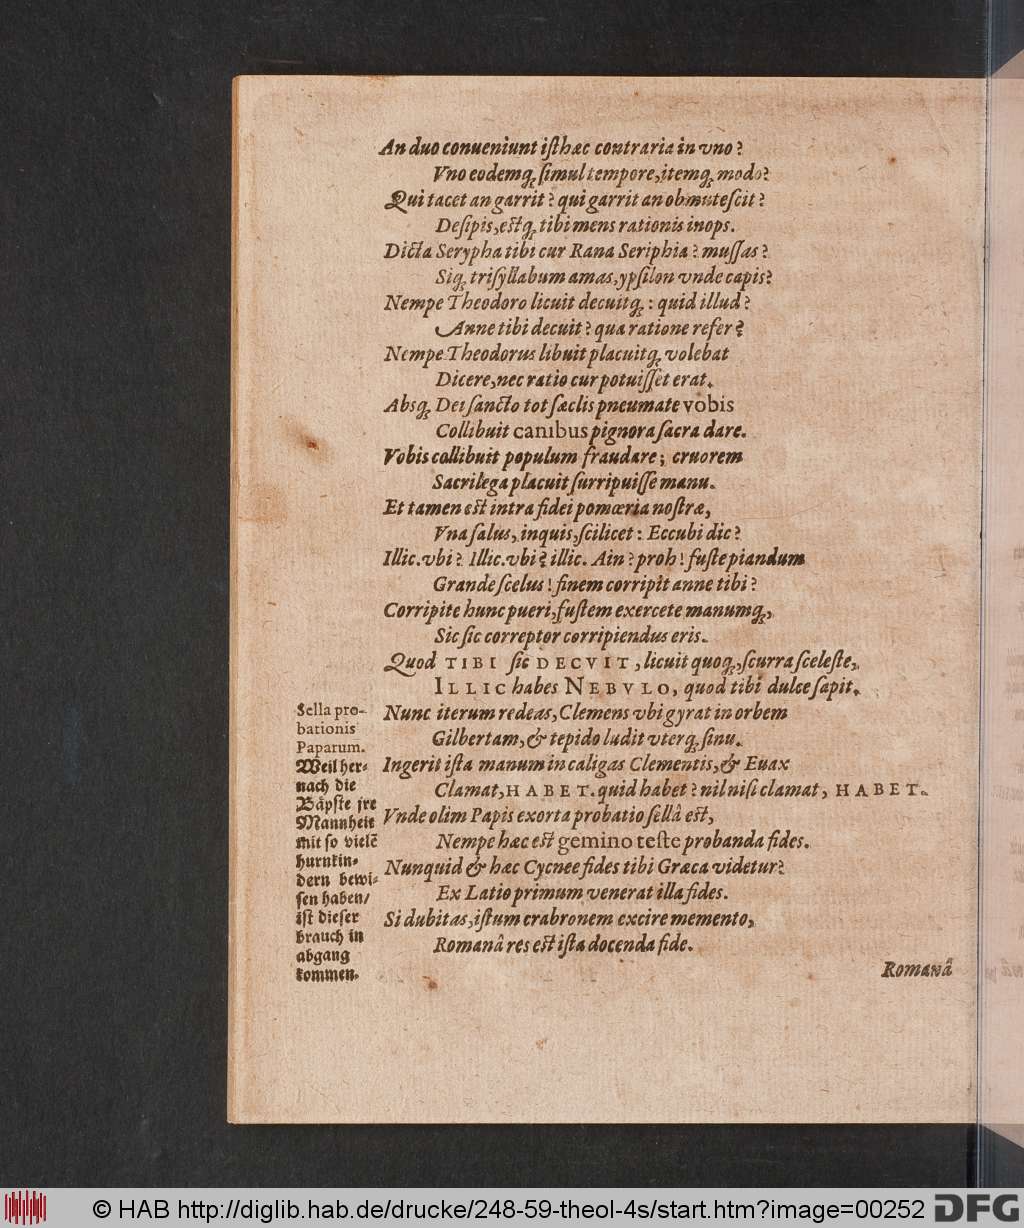 An duo conueniunt isthæc contraria in vno?
Vno eodemq́; simul tempore, itemq́; modo?
Qui tacet an garrit? qui garrit an obmutescit?
Desipis, estq́; tibi mens rationis inops.
Dicta Serypha tibi cur Rana Seriphia? mussas?
Siq́; trisyllabum amas, ypsilon vnde capis?
Nempe Theodoro licuit decuitq́;: quid illud?
Anne tibi decuit? qua ratione refer?
Nempe Theodorus libuit placuitq́; volebat
Dicere, nec ratio cur potuisset erat.
Absq́; Dei sancto tot sæclis pneumate vobis
Collibuit canibus pignora sacra dare.
Vobis collibuit populum fraudare; cruorem
Sacrilega placuit surripuisse manu.
Et tamen est intra fidei pomœria nostræ,
Vna salus, inquis, scilicet: Eccubi dic?
Illic. vbi? Illic. vbi? illic. Ain? proh! fuste piandum
Grande scelus! finem corripit anne tibi?
Corripite hunc pueri, fustem exercete manumq́;,
Sic sic correptor corripiendus eris.
Quod TIBI sic DECVIT, licuit quoq́;, scurra sceleste,
ILLIC habes NEBVLO, quod tibi dulce sapit.
Nunc iterum redeas, Clemens vbi gyrat in orbem
Gilbertam, & tepido ludit vterq́; sinu.
Ingerit ista manum in caligas Clementis, & Euax
Clamat, HABET. quid habet? nil nisi clamat, HABET.
Vnde olim Papis exorta probatio sellâ est,
Nempe hæc est gemino teste probanda fides.
Nunquid & hæc Cycnee fides tibi Græca videtur?
Ex Latio primum venerat illa fides.
Si dubitas, istum crabronem excire memento,
Romanâ res est ista docenda fide.
Romanâ
Sella pro-
bationis
Paparum.
Weil her-
nach die
Bäpste jre
Mannheit
mit so vielẽ
hurnkin-
dern bewi-
sen haben/
ist dieser
brauch in
abgang
kommen.
© HAB http://diglib.hab.de/drucke/248-59-theol-4s/start.htm?image=00252
DFG